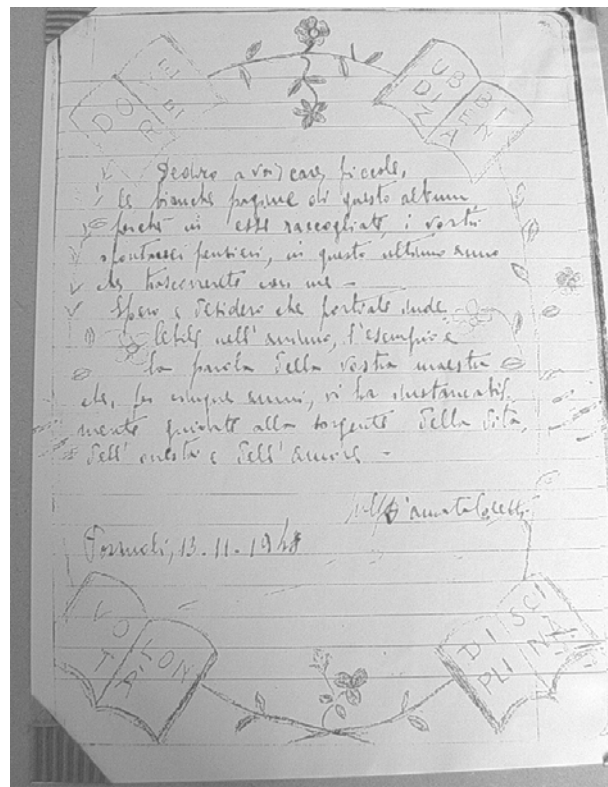 DOVERI
UBBIDIENZA
Dedico a voi, care piccole,
le bianche pagine di questo album,
perché in esse raccogliate, i vostri
spontanei pensieri, in questo ultimo anno
che trascorrerete con me -
Spero e desidero che portiate inde
lebile nell'animo, l'esempio e
la parola della vostra maestra
che, per cinque anni, vi ha instancabil
mente guidate alla sorgente della vita,
dell'onestà e dell'amore -
13-11-1948
VOLONTÀ
DISCIPLINA